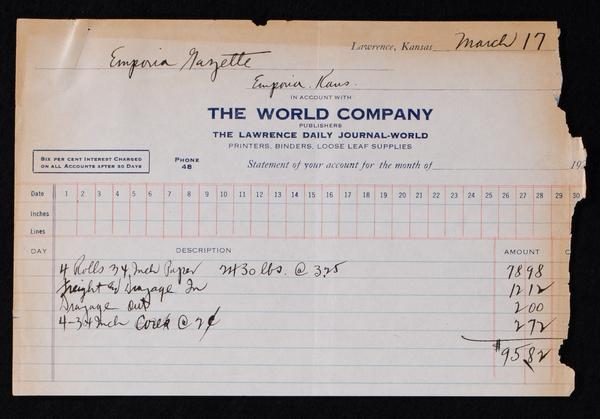 Lawrence, Kansas March 17
Emporia Gazette
Emporia, Kans.
IN ACCOUNT WITH
THE WORLD COMPANY
PUBLISHERS
THE LAWRENCE DAILY JOURNAL-WORLD
PRINTERS, BINDERS, LOOSE LEAF SUPPLIES
SIX PER CENT INTEREST CHARGED
ON ALL ACCOUNTS AFTER 30 DAYS
PHONE
48
Statement of your account for the month of 192
Date 1 2 3 4 5 6 7 8 9 10 11 12 13 14 15 16 17 18 19 20 21 22 23 24 25 26 27 28 29 30
Inches
Lines
DAY DESCRIPTION AMOUNT
4 Rolls 34 Inch Paper 2430 lbs. @ 325 7898
Freight & Drayage In 1212
Drayage Out 200
4-34 Inch @ 2¢ 272
$9582